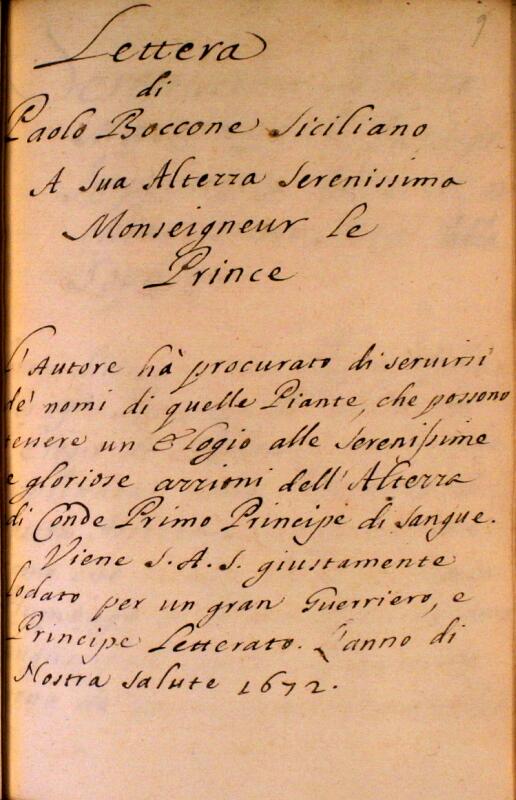 9
Lettera
di
Paolo Boccone Siciliano
A Sua Altezza Serenissima
Monseigneur le
Prince
L'Autore hà procurato di servirsi
de' nomi di quelle Piante, che possono
tenere un Elogio alle Serenissime
e gloriose azzioni dell'Altezza
di Conde Primo Principe di Sangue.
Viene S.A.S. giustamente
lodato per un gran Guerriero, e
Principe Letterato. L'anno di
Nostra Salute 1672.